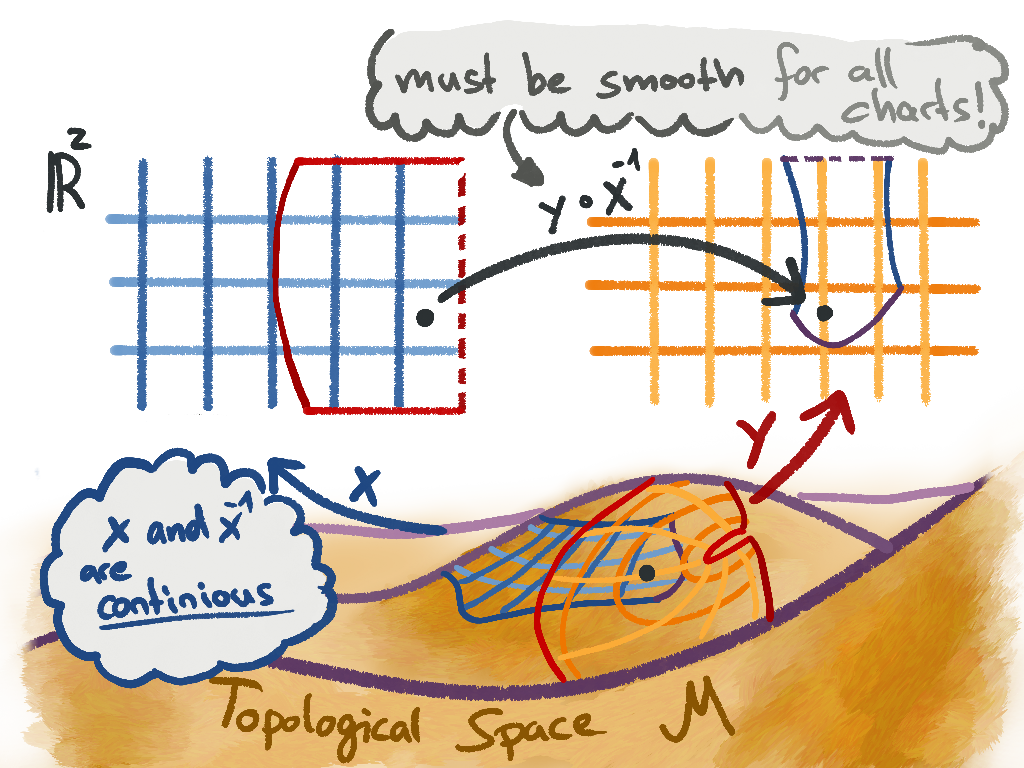 must be smooth for all
charts!
ℝ²
y ∘ x⁻¹
y
x
x and x⁻¹
are
continious
Topological Space M